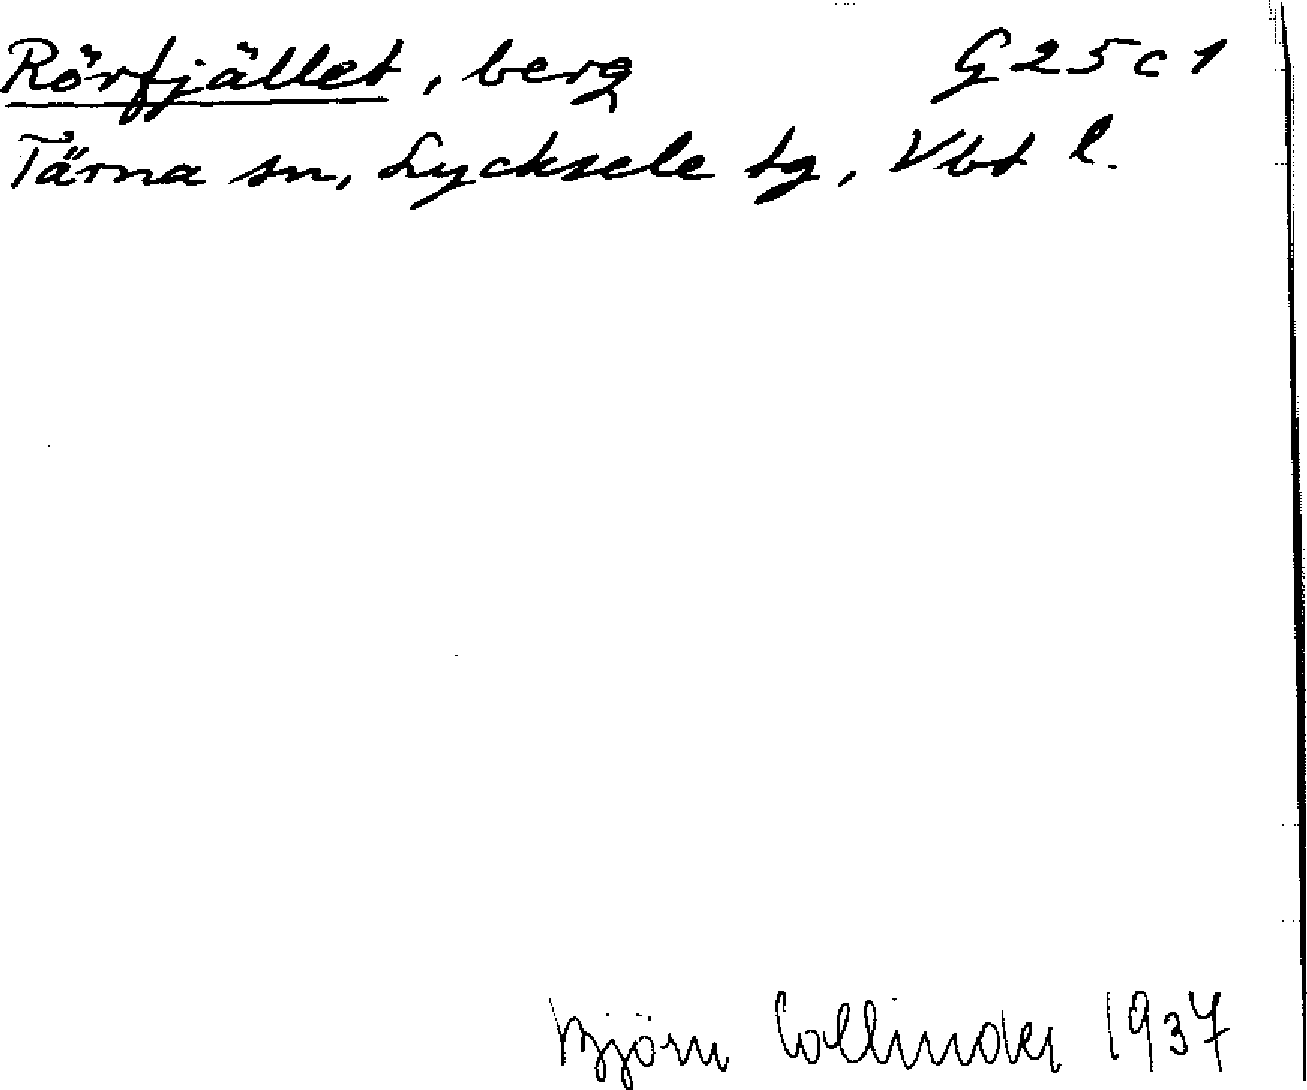 Rörfjället, berg G25c1
Tärna sn, Lycksele lg, Vbt l.
Björn Collinder 1937